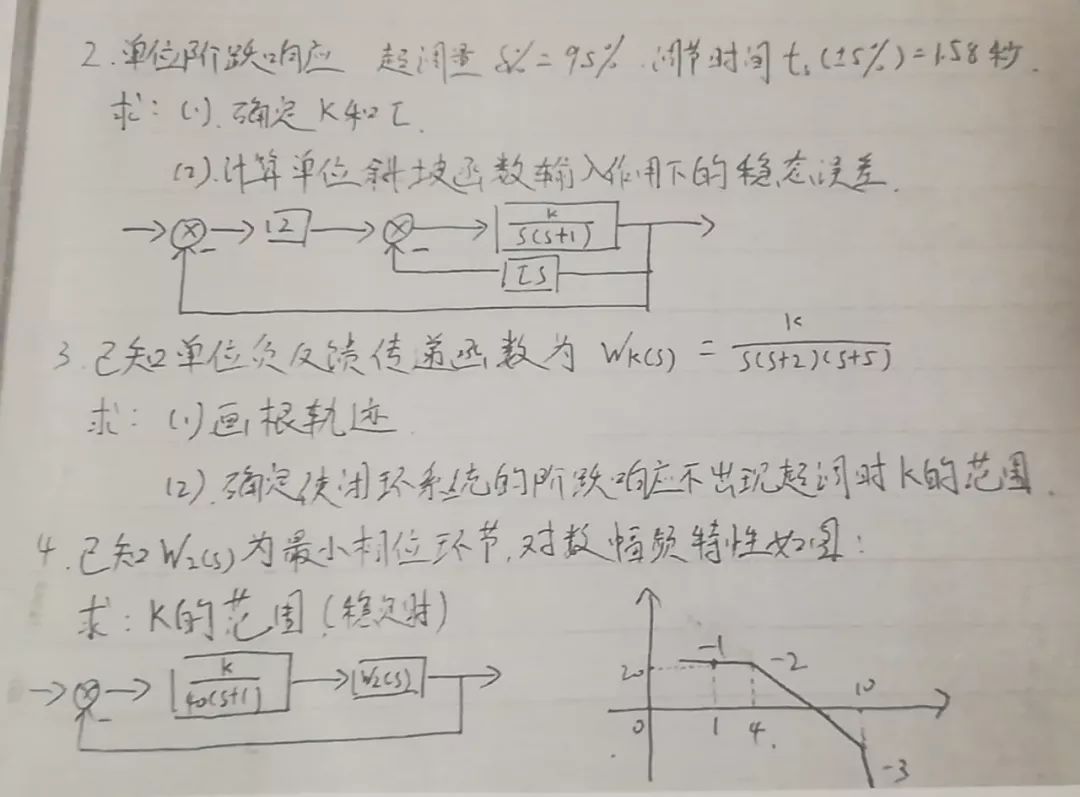 2.单位阶跃响应 超调量 δ%=9.5% 调节时间 ts(±5%)=1.58秒.
求:(1).确定K和τ.
(2).计算单位斜坡函数输入作用下的稳态误差.
12
K/S(S+1)
τS
3.已知单位负反馈传递函数为 WK(S) = K/S(S+2)(S+5)
求:(1)画根轨迹
(2).确定使闭环系统的阶跃响应不出现超调时K的范围.
4.已知W2(S)为最小相位环节,对数幅频特性如图:
求:K的范围(稳定时)
K/40(S+1)
W2(S)
-1
-2
20
10
0
1
4
-3